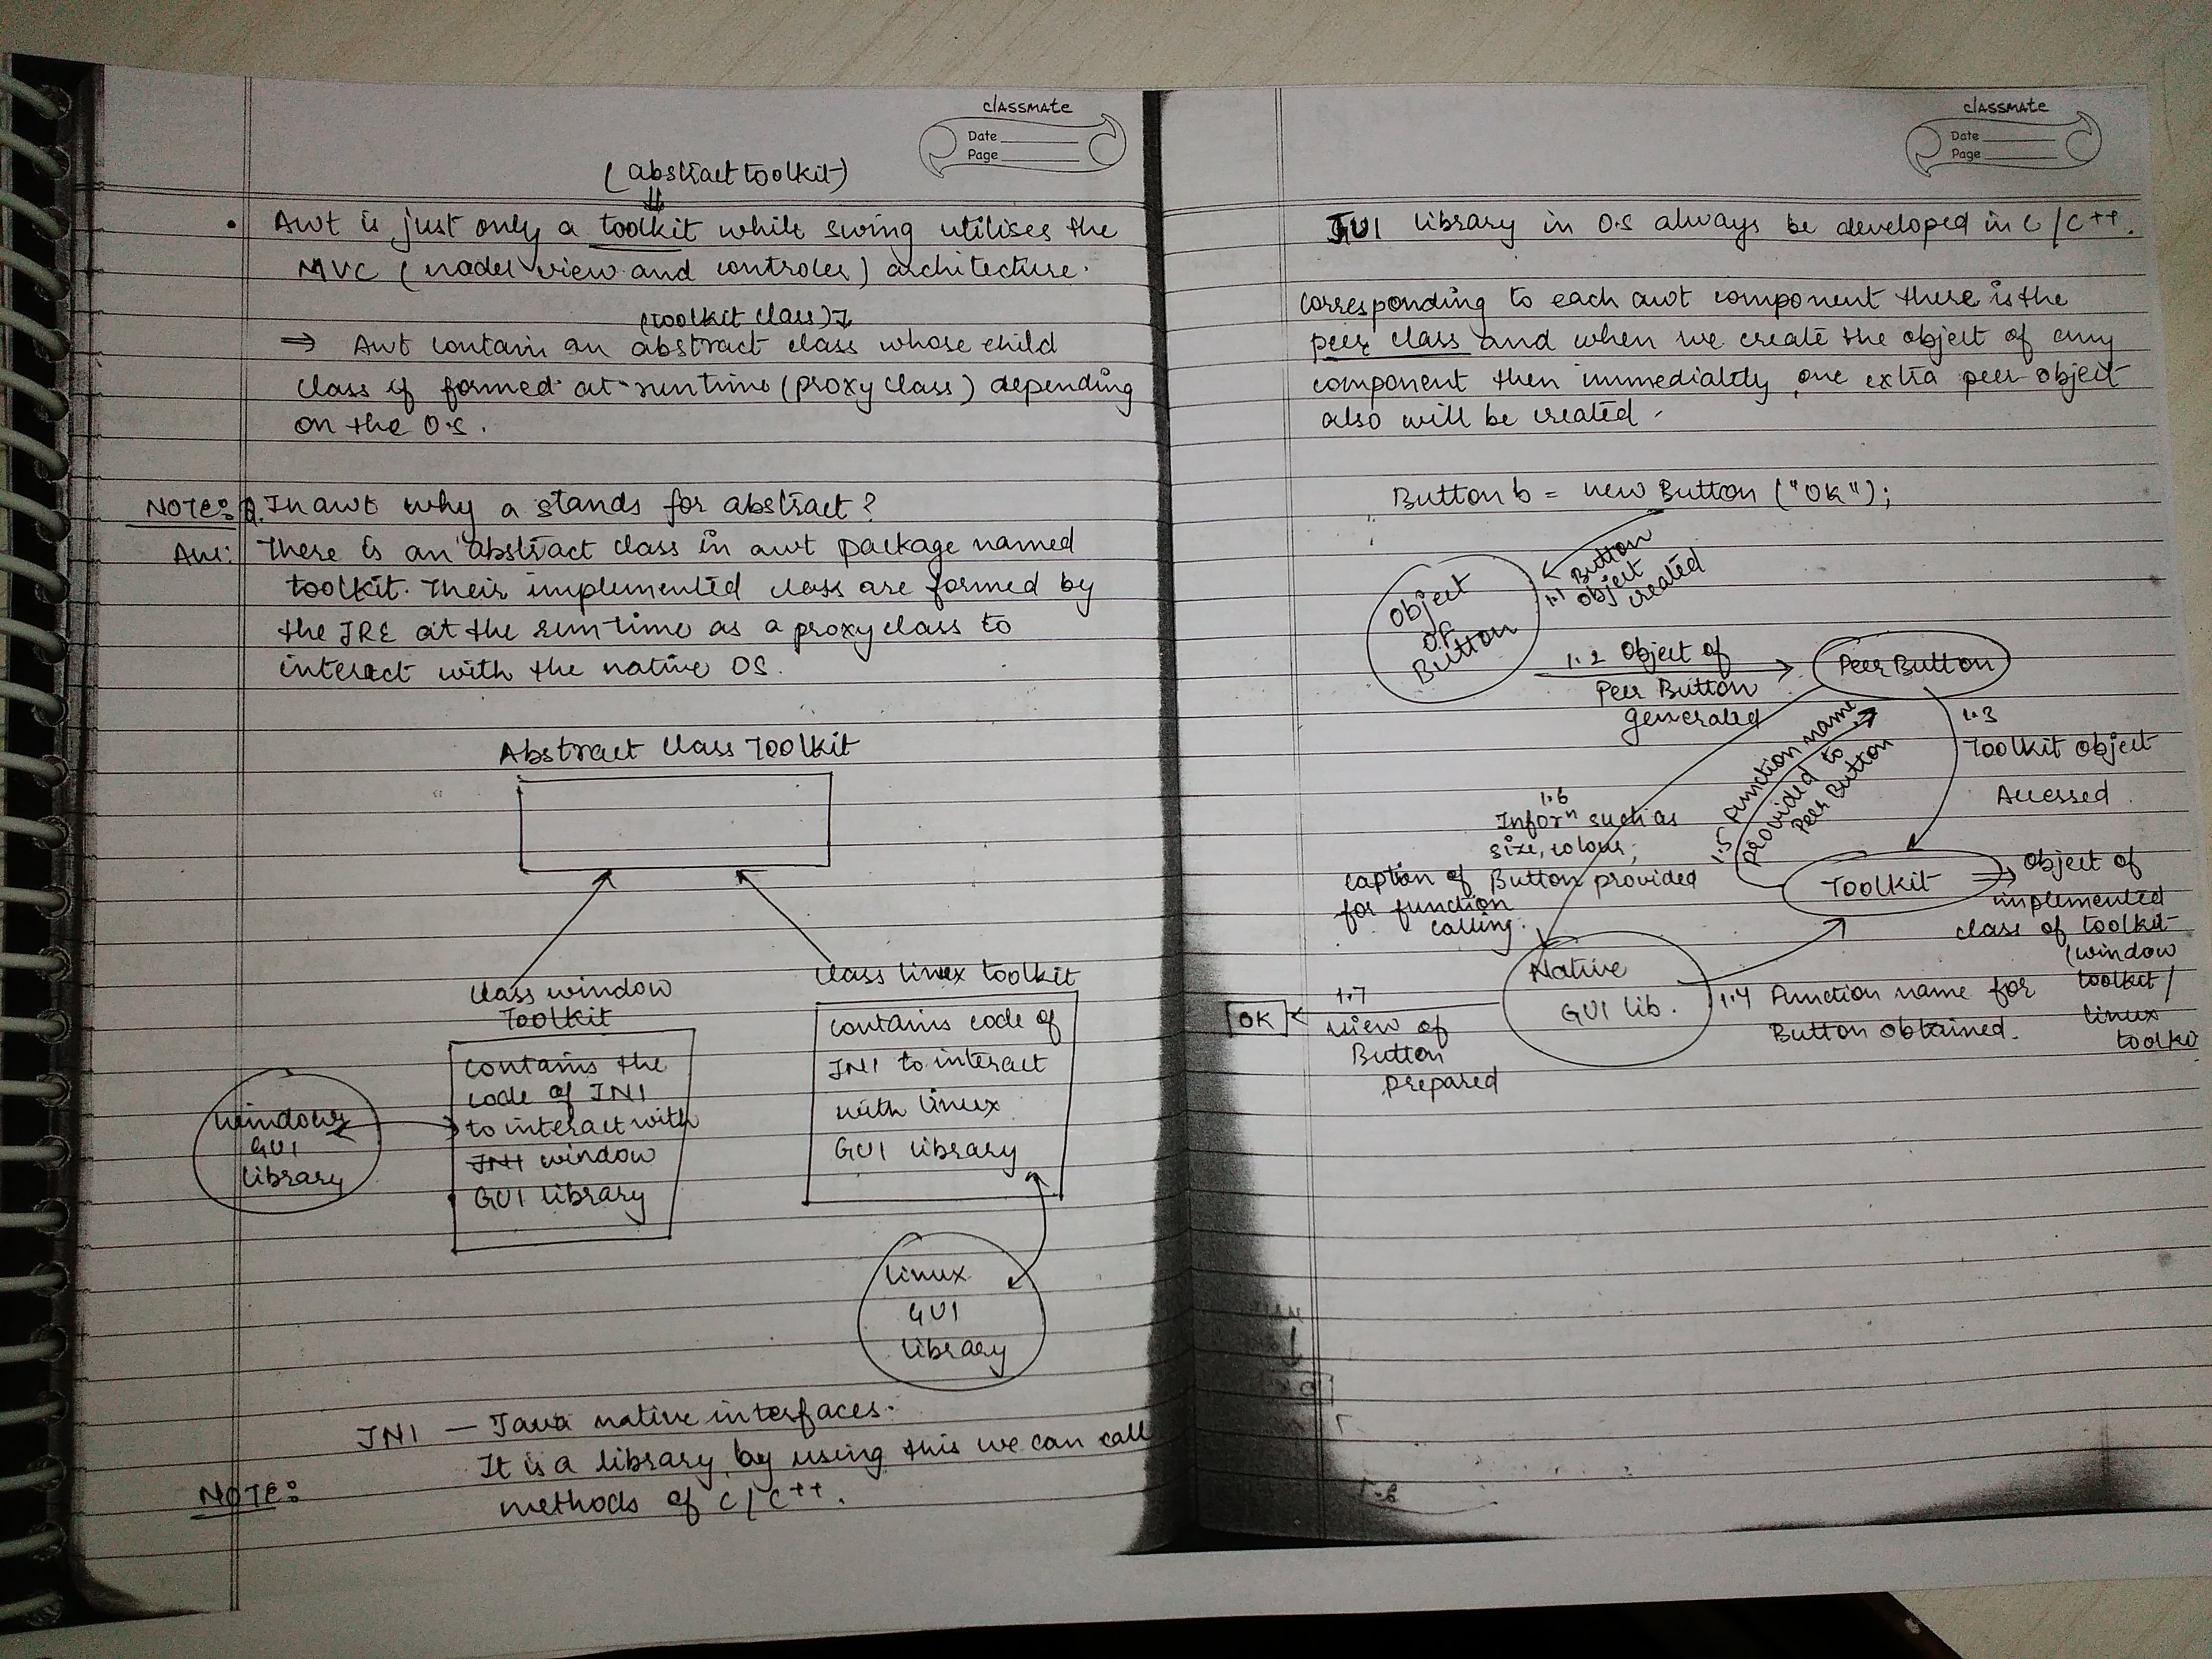 classmate
Date
Page
(abstract toolkit)
• Awt is just only a toolkit while swing utilises the
MVC (model view and controler) architecture.
(toolkit class)
⇒ Awt contain an abstract class whose child
class is formed at runtime (proxy class) depending
on the O.S.
NOTE: Q. In awt why a stands for abstract?
Ans: There is an abstract class in awt package named
toolkit. Their implemented class are formed by
the JRE at the runtime as a proxy class to
interact with the native OS.
Abstract class Toolkit
class window
Toolkit
contains the
code of JNI
to interact with
JNI window
GUI library
windows
GUI
library
class linux toolkit
contains code of
JNI to interact
with linux
GUI library
linux
GUI
library
JNI — Java native interfaces.
It is a library by using this we can call
NOTE:
methods of C/C++.
classmate
Date
Page
GUI library in O.S always be developed in C/C++.
corresponding to each awt component there is the
peer class and when we create the object of any
component then immediatly one extra peer object
also will be created.
Button b = new Button ("OK");
Object
of
Button
1.1 Button
object
created
1.2 Object of
Peer Button
generated
Peer Button
1.3
Toolkit object
Accessed
1.5 Function name
provided to
Peer Button
1.6
Inforⁿ such as
size, colour,
caption of Button provided
for function
calling.
Toolkit ⇒ object of
implemented
class of toolkit
(window
toolkit/
linux
Native
GUI lib.
1.4 Function name for
Button obtained.
1.7
view of
Button
prepared
OK